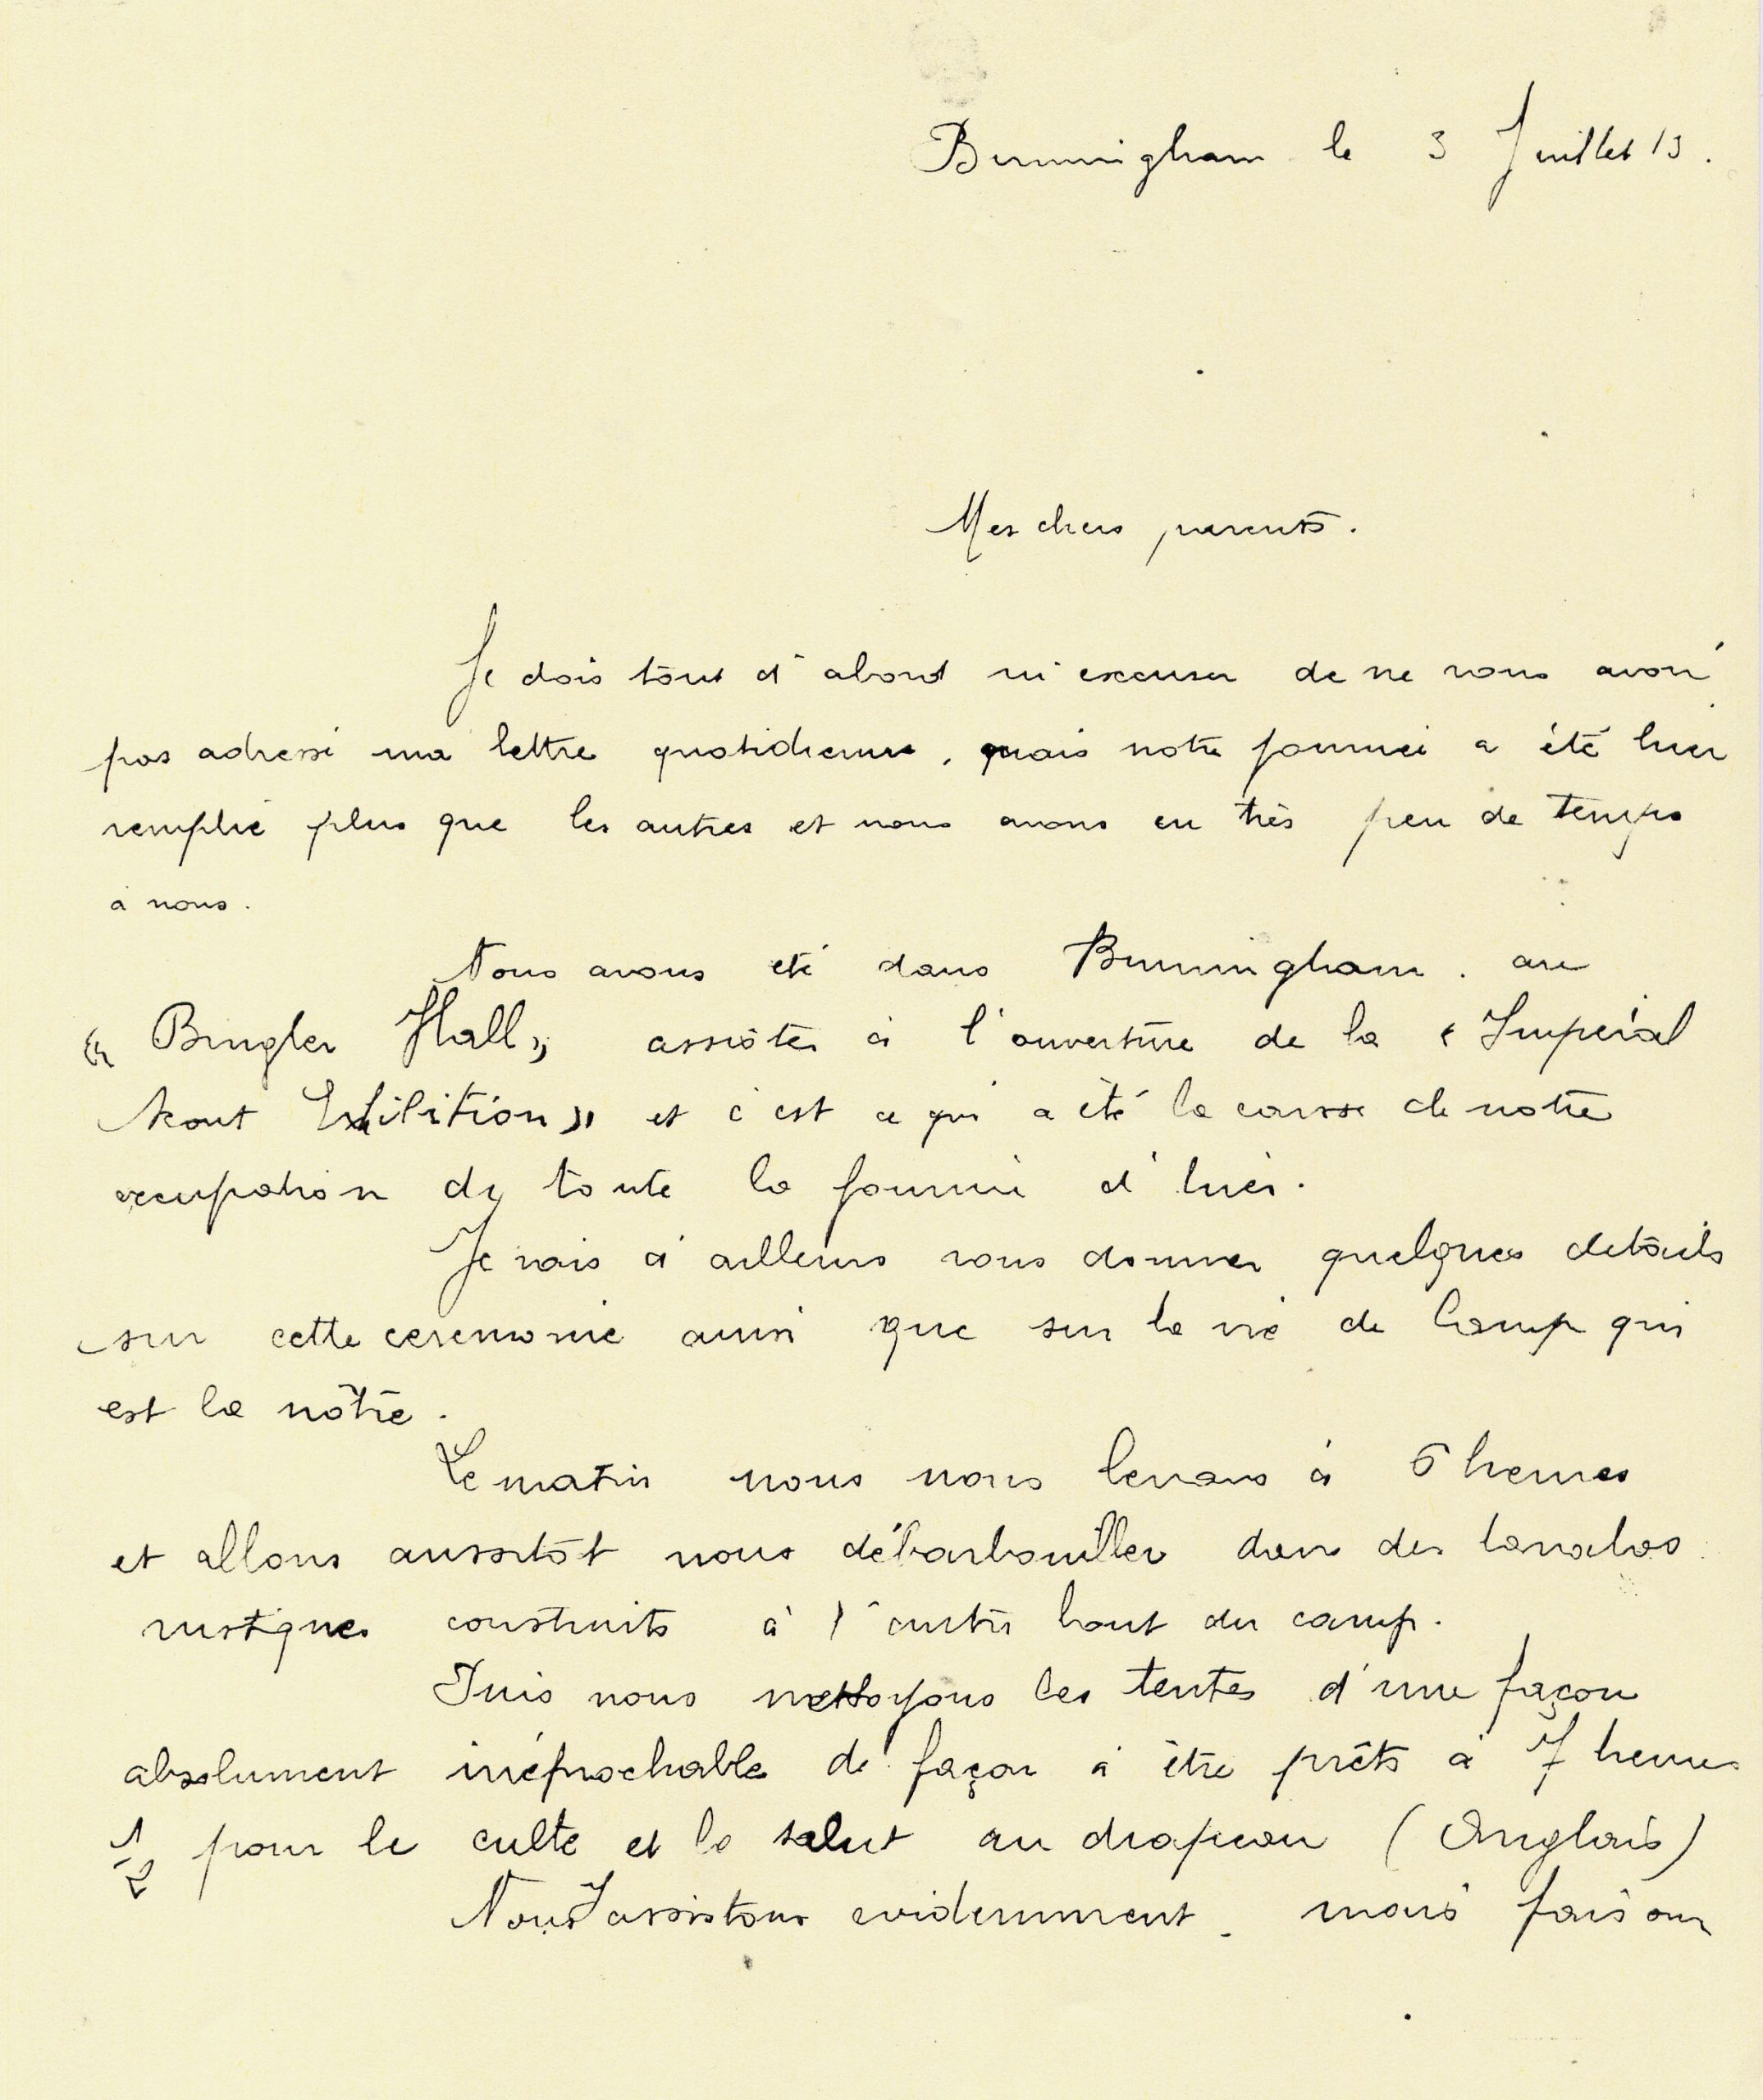 Birmingham le 3 Juillet 13.
Mes chers parents.
Je dois tout d'abord m'excuser de ne vous avoir
pas adressé ma lettre quotidienne, mais notre journée a été hier
remplie plus que les autres et nous avons eu très peu de temps
à nous.
Nous avons été dans Birmingham. au
« Bingley Hall » assister à l'ouverture de la « Imperial
Scout Exhibition » et c'est ce qui a été la cause de notre
occupation de toute la journée d'hier.
Je vais d'ailleurs vous donner quelques details
sur cette ceremonie ainsi que sur la vie de Camp qui
est la nôtre.
Le matin nous nous levons à 6 heures
et allons aussitôt nous débarbouiller dans des lavabos
rustiques construits à l'autre bout du camp.
Puis nous nettoyons les tentes d'une façon
absolument irréprochable de façon à être prêts à 7 heures
1/2 pour le culte et le salut au drapeau (Anglais)
Nous y assistons evidemment. mais faisons